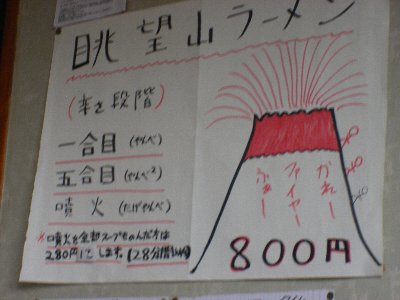 眺望山ラーメン
(辛さ段階)
一合目 (やんべ)
五合目 (やんべ²)
噴火 (たげやんべ)
*噴火を全部スープものんだ方は
280円にします。(28分間以内)
かれー
ファイヤー
ふぁー
800円